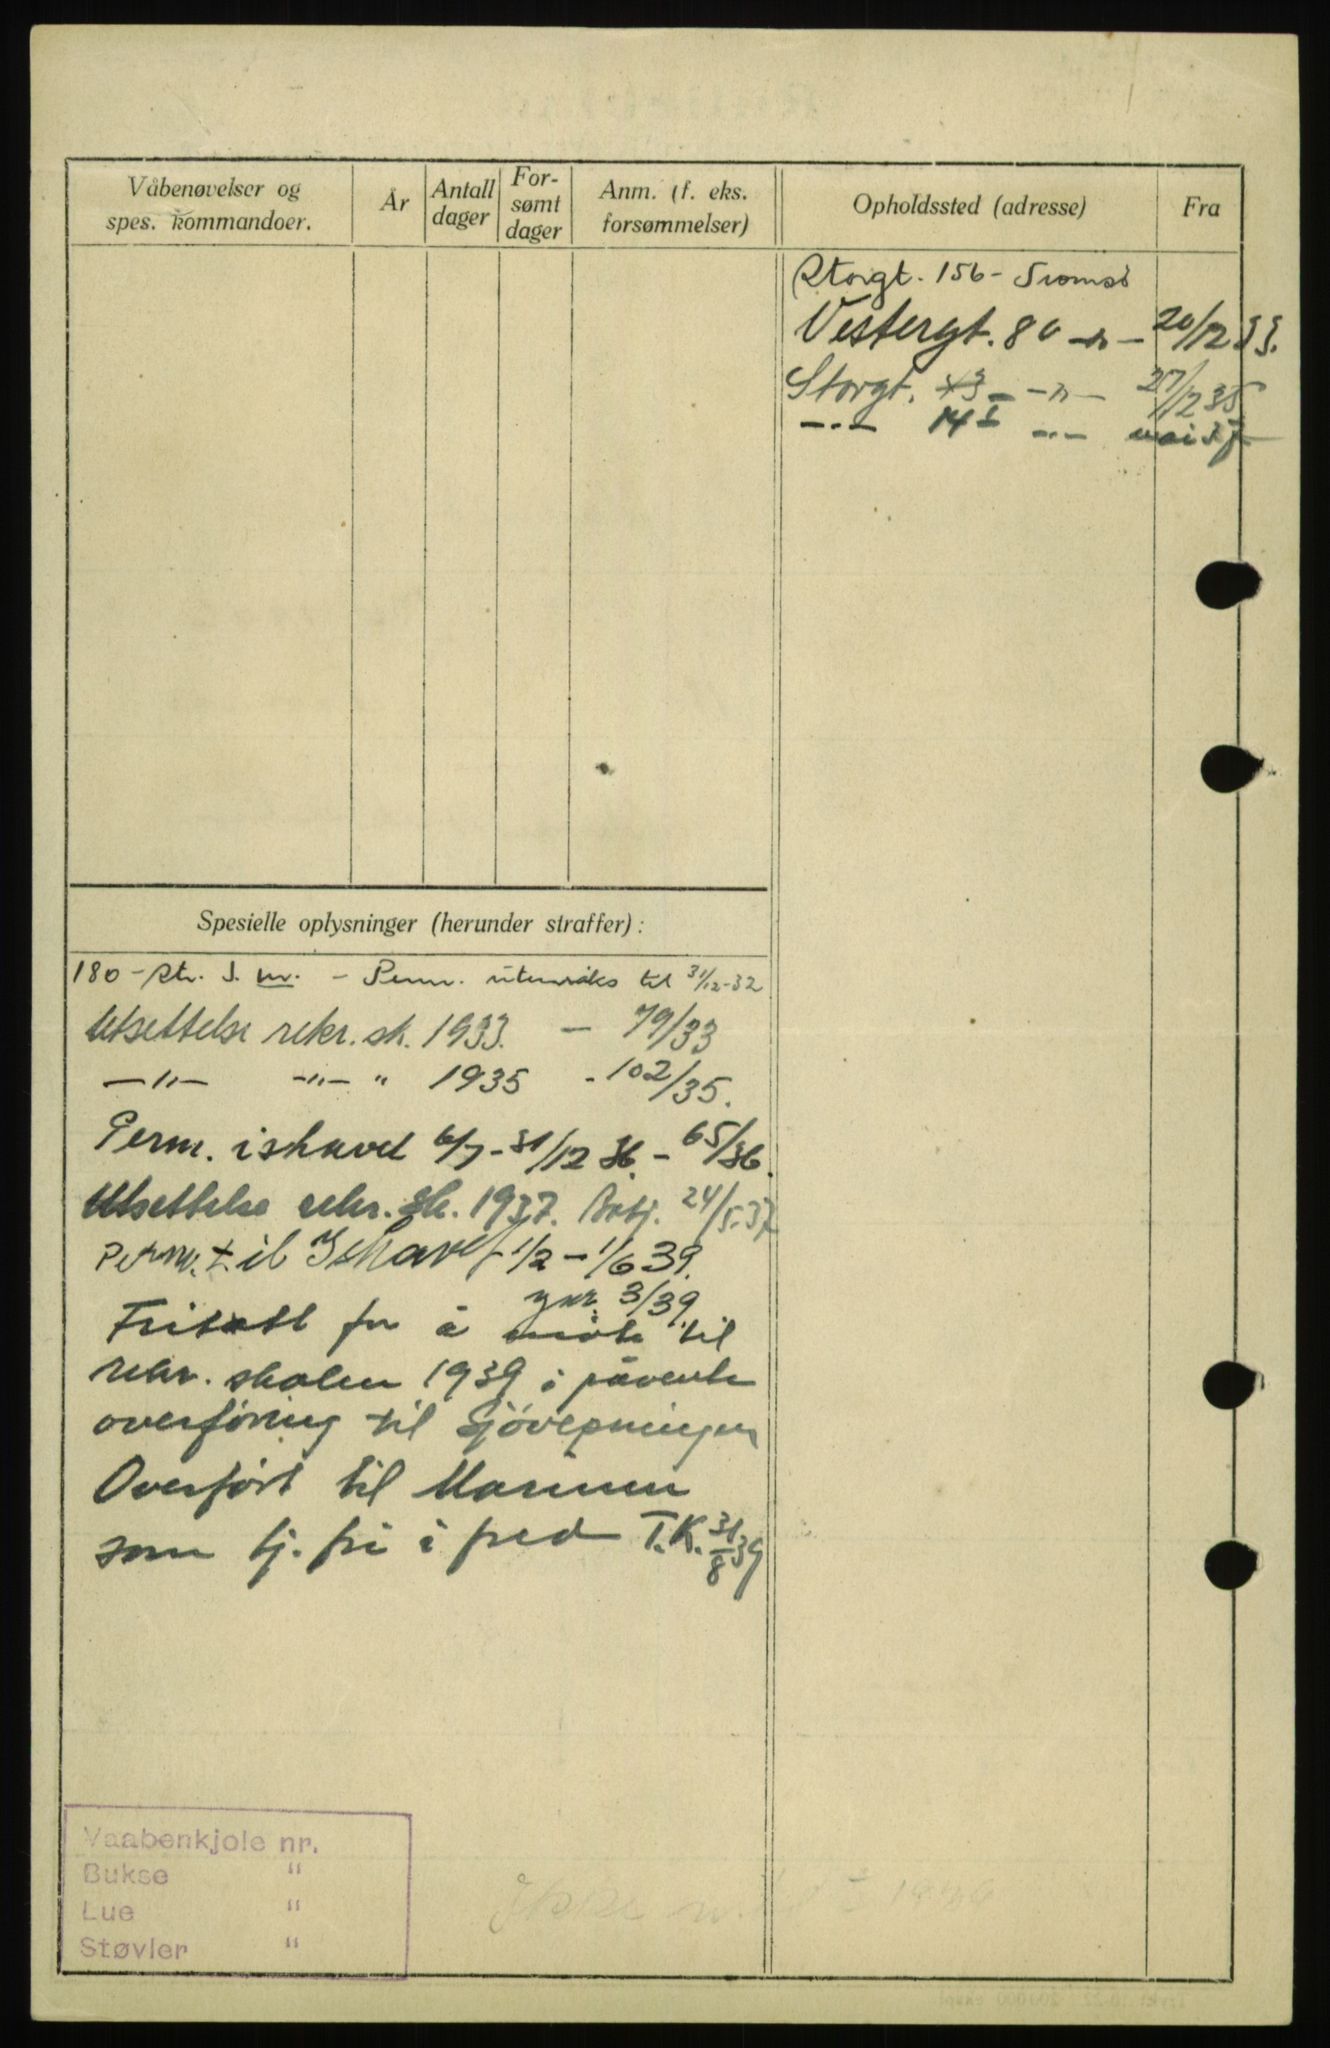 Våbenøvelser og
spes. kommandoer.
År
Antall
dager
For-
sømt
dager
Anm. (f. eks.
forsømmelser)
Opholdssted (adresse)
Fra
Storgt. 156 - Tromsø
Vestergt. 80 -"- 20/12 33.
Storgt. 43 -"- 27/12 35
-"- 14 I -"- mai 37
Spesielle oplysninger (herunder straffer):
180 - str. I. m. - Perm. utenriks til 31/12-32
Utsettelse rekr. sk. 1933. - 79/33
-"- -"- " 1935 - 102/35.
Perm. ishavet 6/7 - 31/12 36. - 65/36.
Utsettelse rekr. sk. 1937. 24/5.37
Perm. til Ishavet 1/2 - 1/6 39.
3/39.
Fritatt for å møte til
rekr. skolen 1939 i påvente
overføring til Sjøvepningen
Overført til Marinen
som tj. fri i fred T.K. 31/8 39
Vaabenkjole nr.
Bukse "
Lue "
Støvler "
Ikke